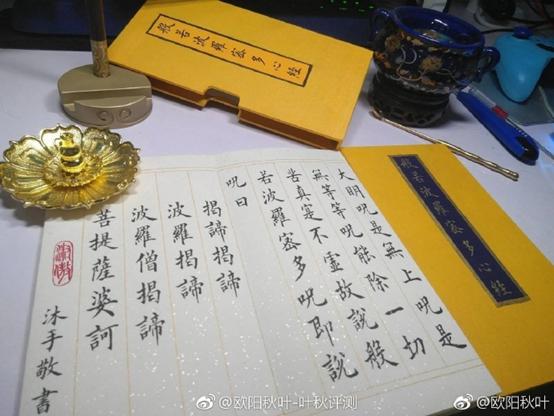 般若波羅密多心經
般若波羅密多心經
大明呪是無上呪是
無等等呪能除一切
苦真寔不虛故說般
若波羅密多呪即說
呪曰
揭諦揭諦
波羅揭諦
波羅僧揭諦
菩提薩婆訶
沐手敬書
@欧阳秋叶-叶秋评测
@欧阳秋叶